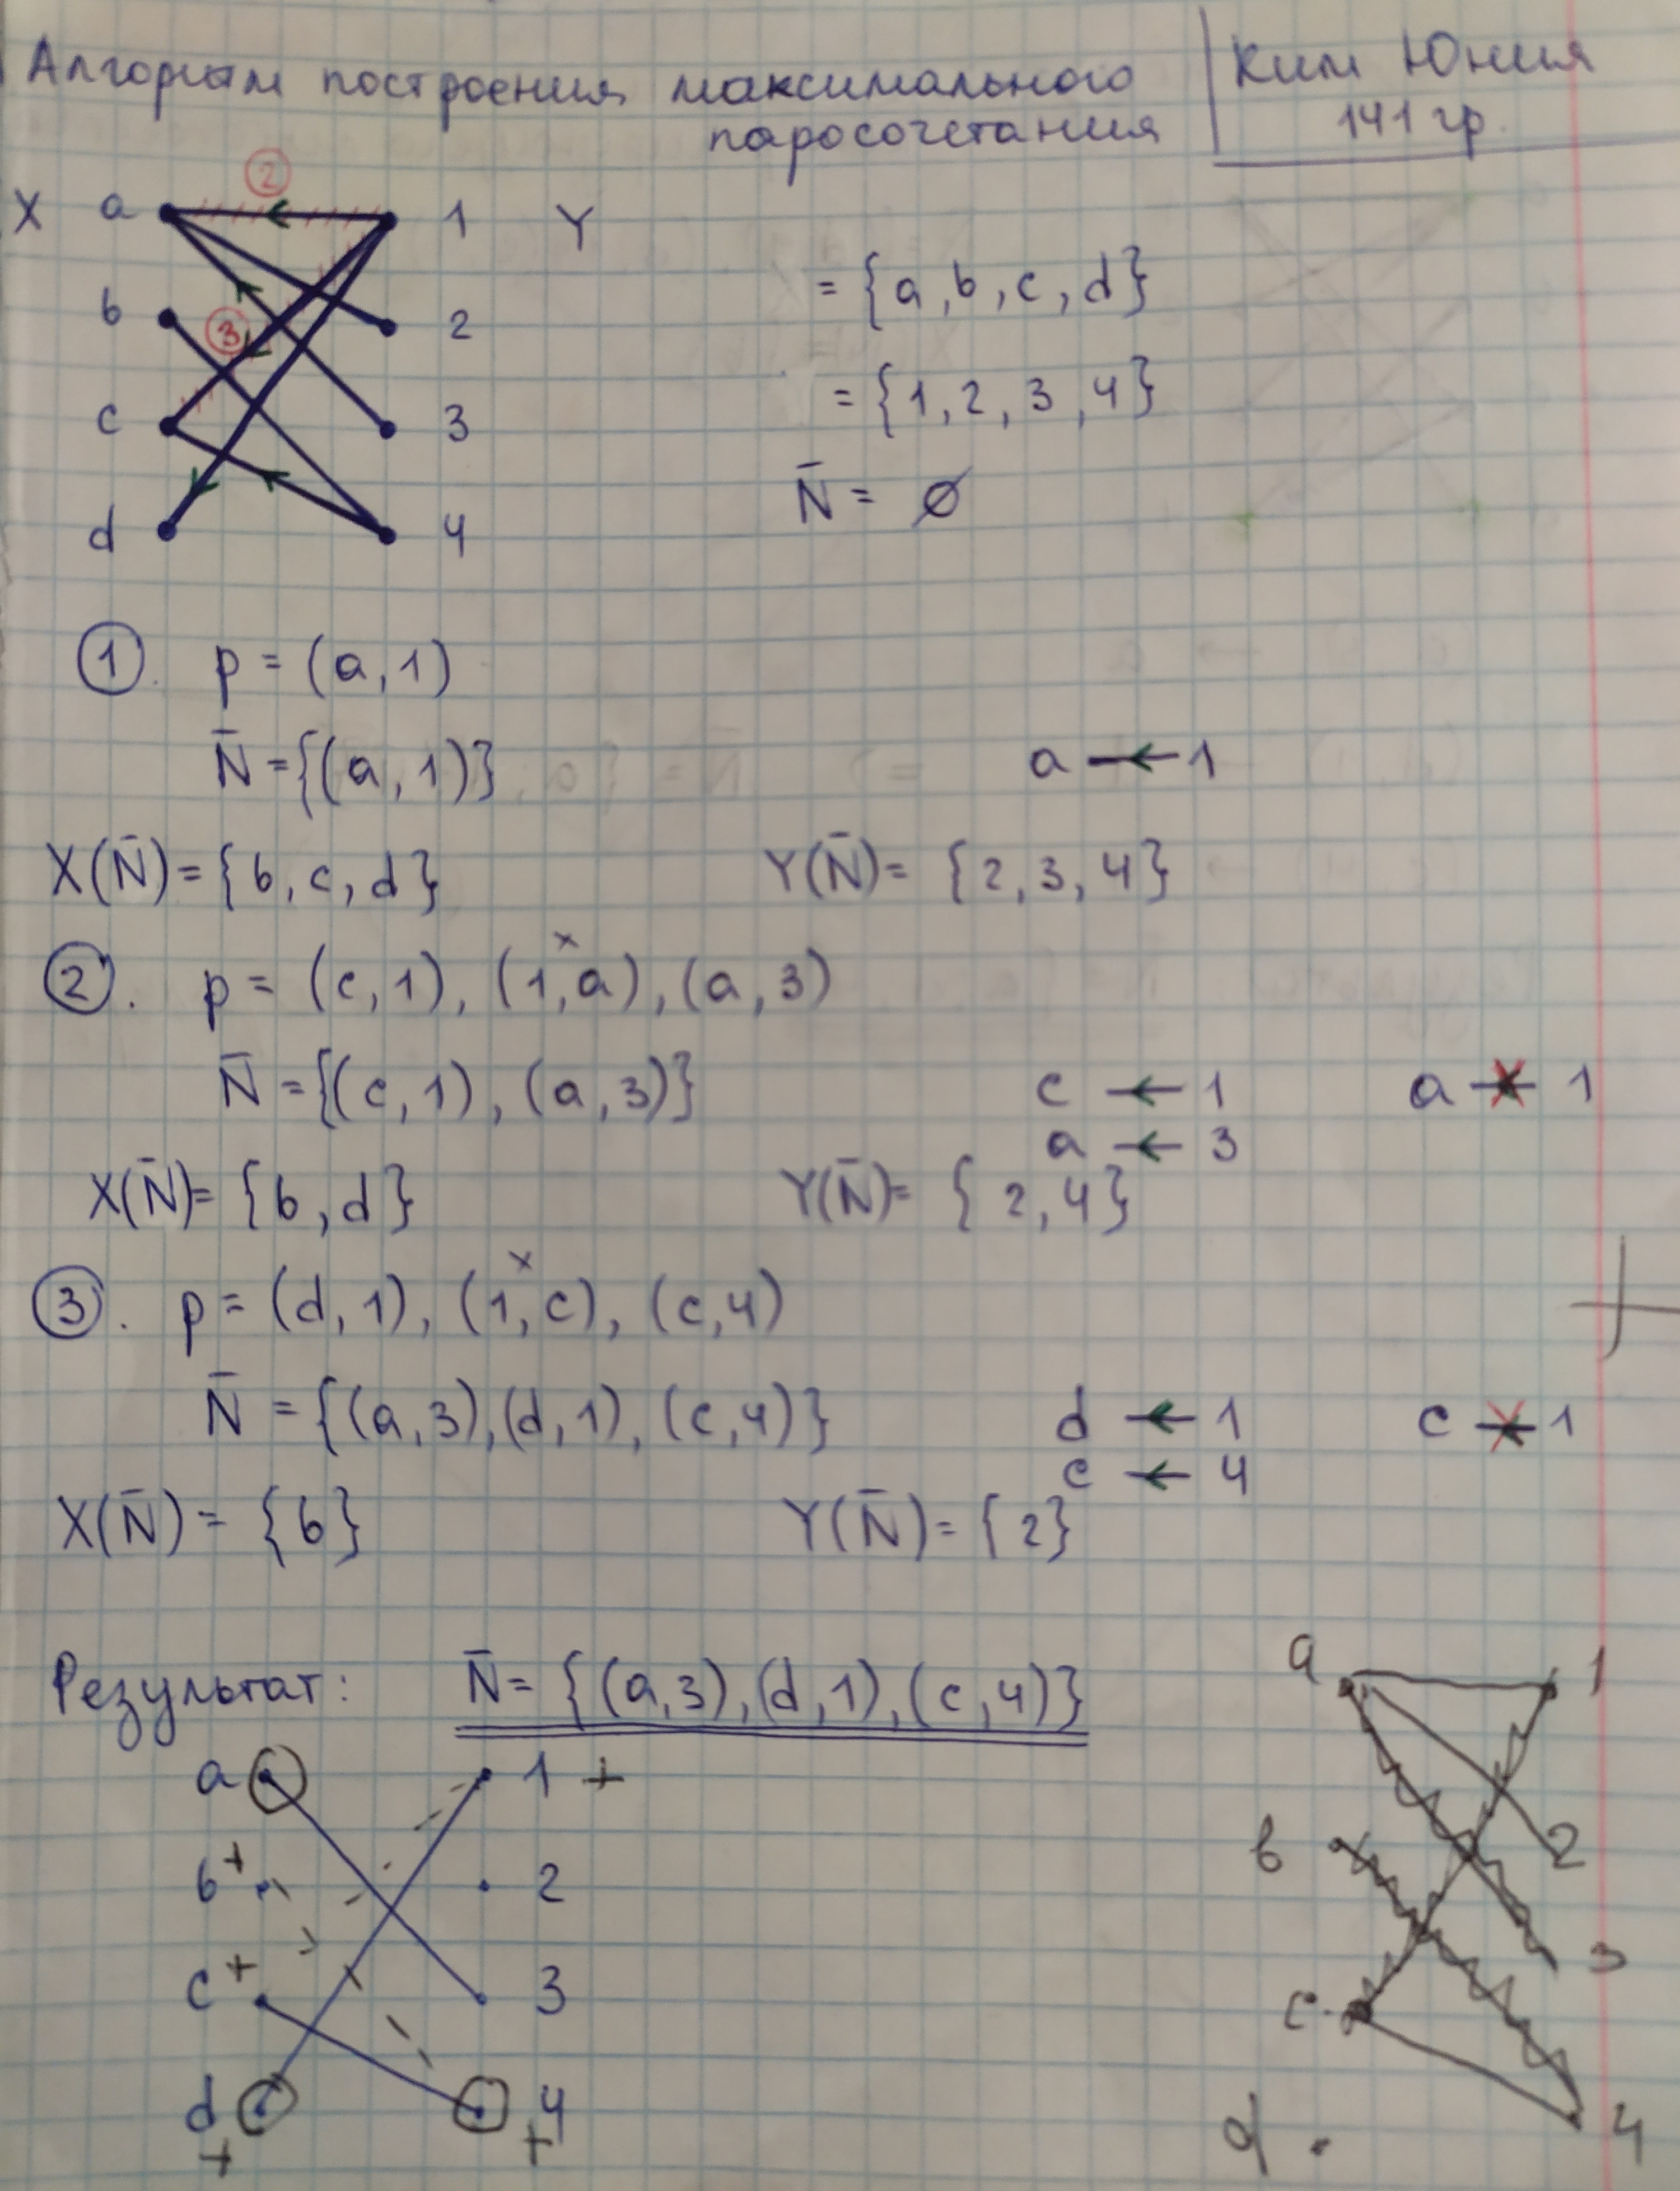 Алгоритм построения максимального
паросочетания
Ким Юния
141 гр.
X a 1 Y
②
b 2
③
c 3
d 4
= {a, b, c, d}
= {1, 2, 3, 4}
N̄ = ∅
①. p = (a, 1)
N̄ = {(a, 1)} a ← 1
X(N̄) = {b, c, d} Y(N̄) = {2, 3, 4}
②. p = (c, 1), (1, a), (a, 3)
N̄ = {(c, 1), (a, 3)} c ← 1 a 1
a ← 3
X(N̄) = {b, d} Y(N̄) = {2, 4}
③. p = (d, 1), (1, c), (c, 4)
N̄ = {(a, 3), (d, 1), (c, 4)} d ← 1 c 1
c ← 4
X(N̄) = {b} Y(N̄) = {2}
Результат: N̄ = {(a, 3), (d, 1), (c, 4)}
a 1 +
b + 2
c + 3
d + 4 +
a 1
b 2
c 3
d 4